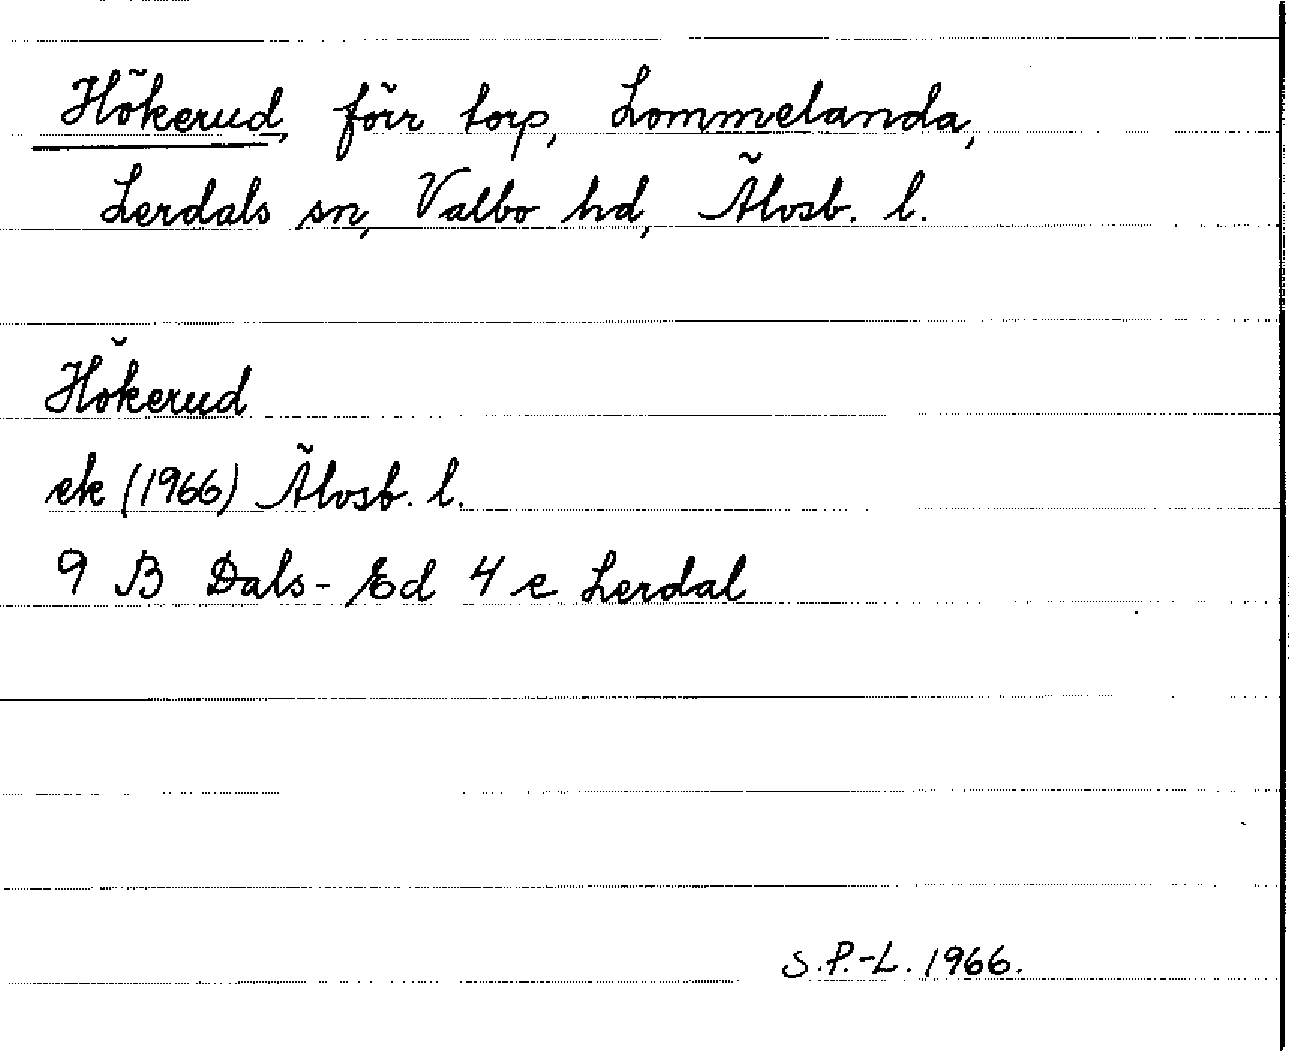 Hökerud, förr torp, Lommelanda,
Lerdals sn, Valbo hd, Älvsb. l.
Hökerud
ek (1966) Älvsb. l.
9 B Dals-Ed 4 e Lerdal
S.P.-L. 1966.